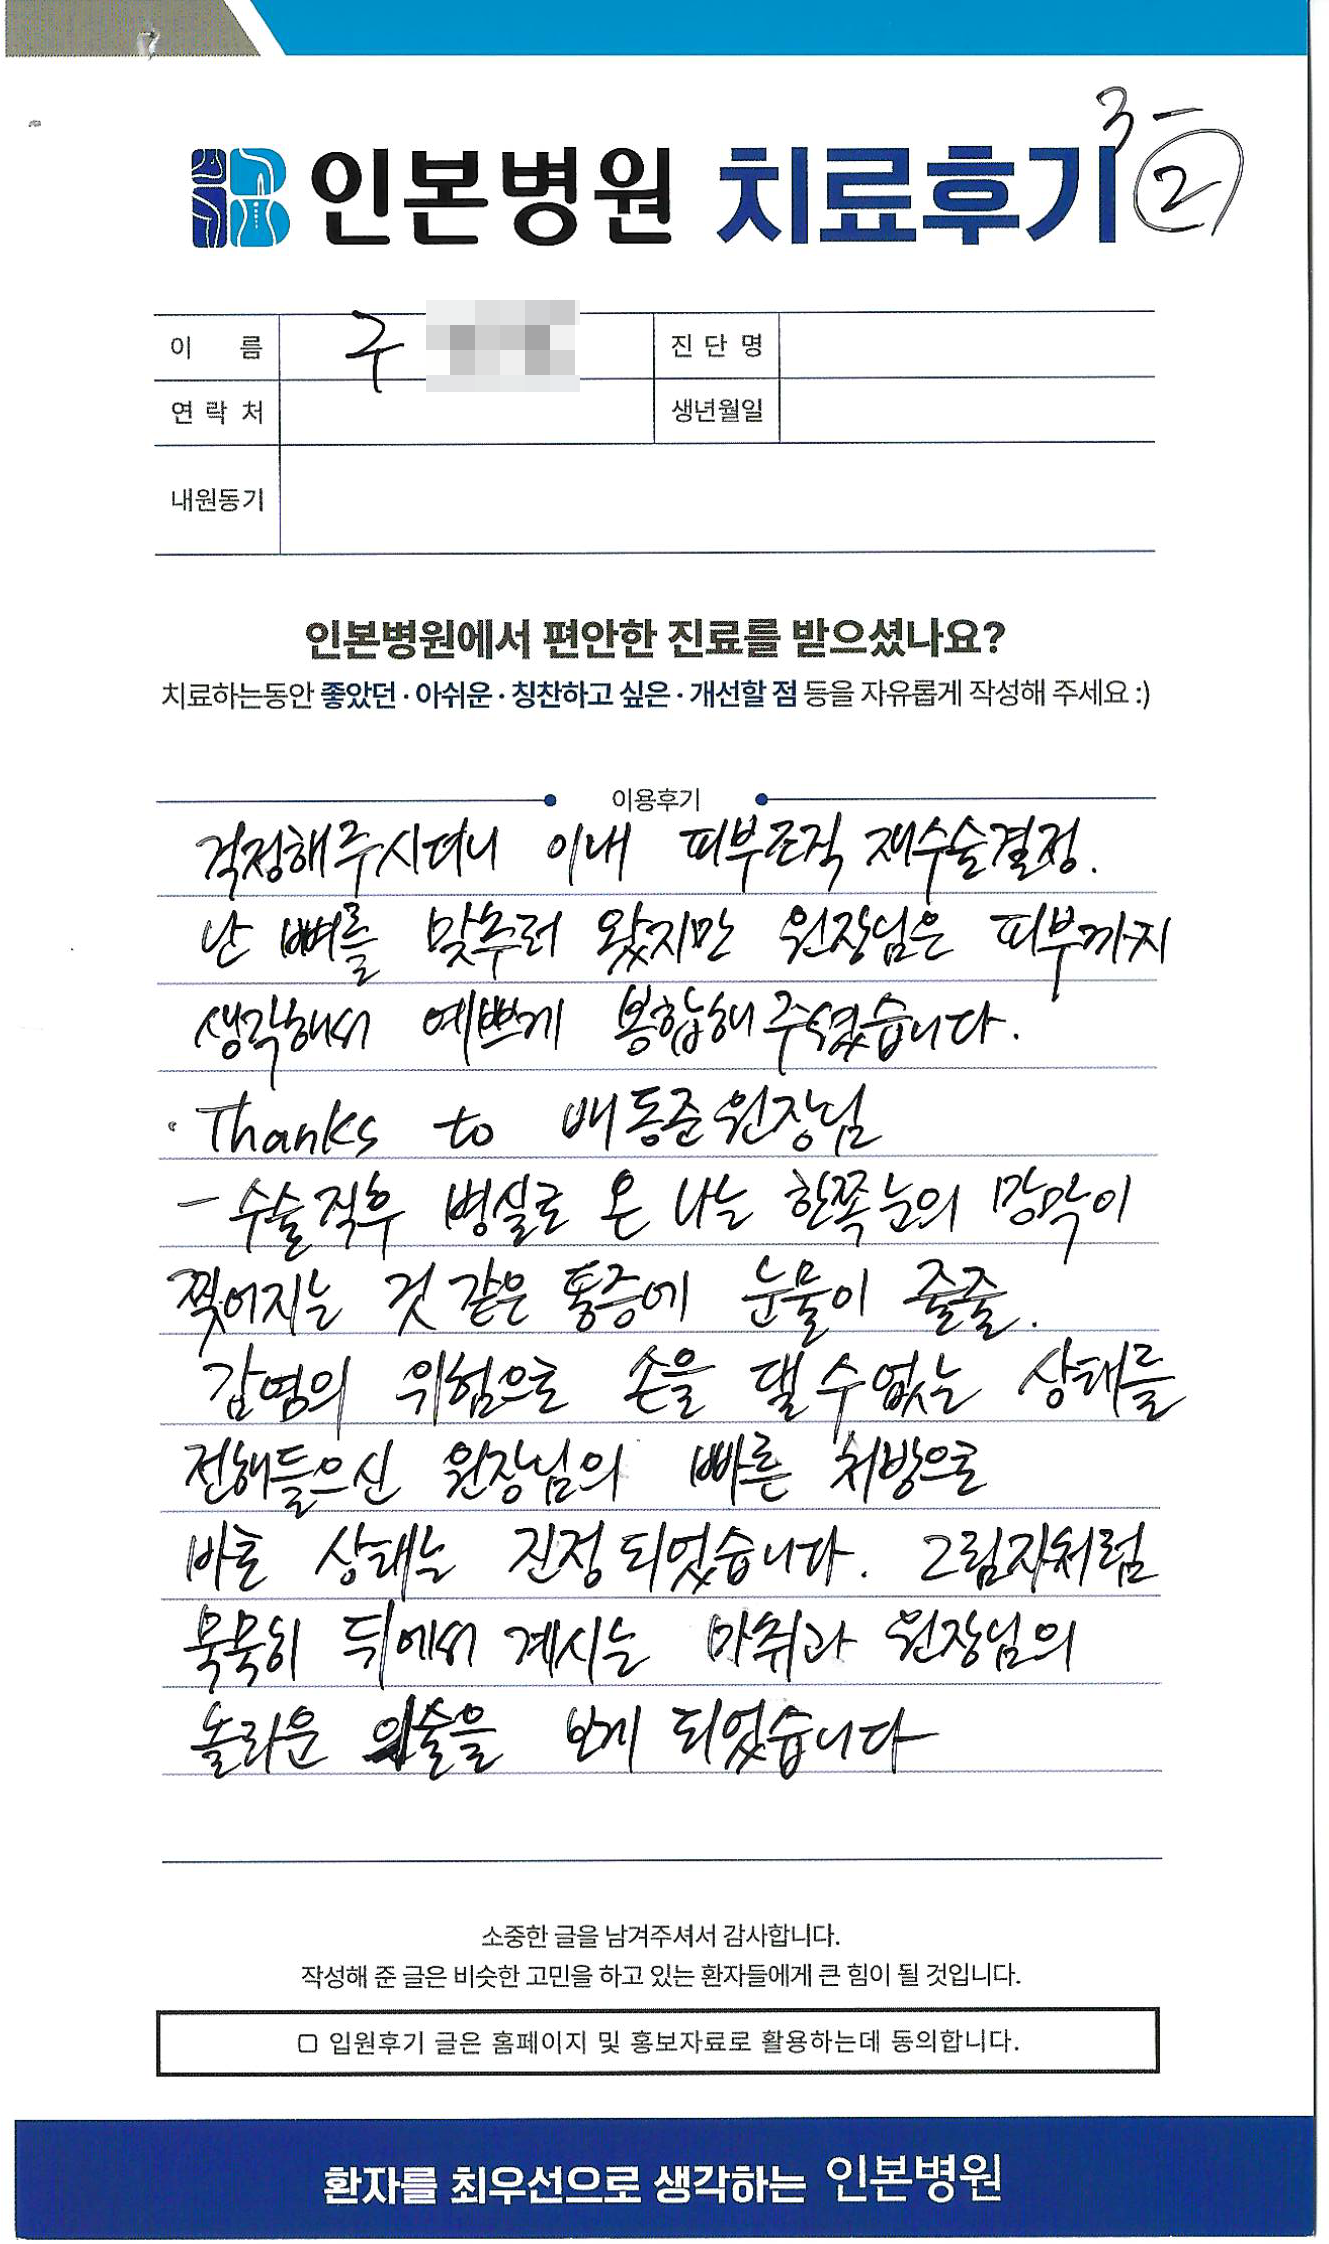 인본병원 치료후기 3-②
이 름 구 진 단 명
연 락 처 생년월일
내원동기
인본병원에서 편안한 진료를 받으셨나요?
치료하는동안 좋았던 · 아쉬운 · 칭찬하고 싶은 · 개선할 점 등을 자유롭게 작성해 주세요 :)
이용후기
걱정해주시더니 이내 피부조직 재수술결정.
난 뼈를 맞추러 왔지만 원장님은 피부까지
생각해서 예쁘게 봉합해주셨습니다.
· Thanks to 배동준원장님
- 수술직후 병실로 온 나는 한쪽눈의 망막이
찢어지는 것 같은 통증에 눈물이 줄줄.
감염의 위험으로 손을 댈 수 없는 상태를
전해들으신 원장님의 빠른 처방으로
바로 상태는 진정되었습니다. 그림자처럼
묵묵히 뒤에서 계시는 마취과 원장님의
놀라운 의술을 보게 되었습니다
소중한 글을 남겨주셔서 감사합니다.
작성해 준 글은 비슷한 고민을 하고 있는 환자들에게 큰 힘이 될 것입니다.
□ 입원후기 글은 홈페이지 및 홍보자료로 활용하는데 동의합니다.
환자를 최우선으로 생각하는 인본병원